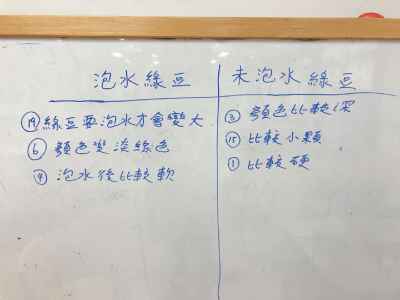 泡水綠豆
未泡水綠豆
⑲綠豆要泡水才會變大
⑥顏色變淡綠色
④泡水後比較軟
③顏色比較深
⑮比較小顆
①比較硬